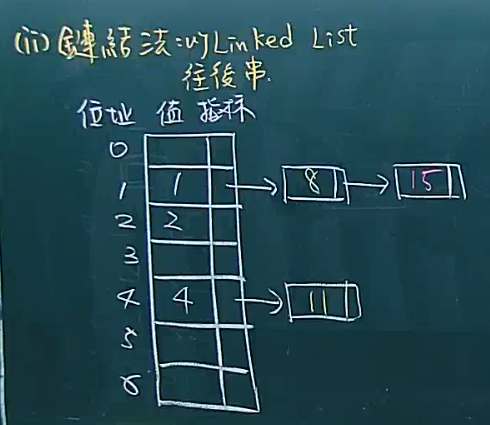 (ii) 鏈結法:以Linked List
往後串.
位址 值 指标
0
1 1 → 8 → 15
2 2
3
4 4 → 11
5
6